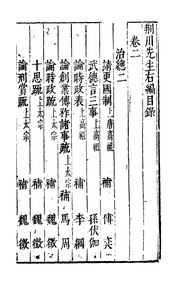 荆川先生右編目錄
卷二
治總二
請更國制上唐高祖 補 傅奕
武德言三事上高祖 孫伏伽
論時政表上高祖 補 李綱
論創業傳祚諸事疏上太宗 補 馬周
論時政疏上太宗 補 魏徵
十思疏上太宗 補 魏徵
論刑賞疏上太宗 補 魏徵